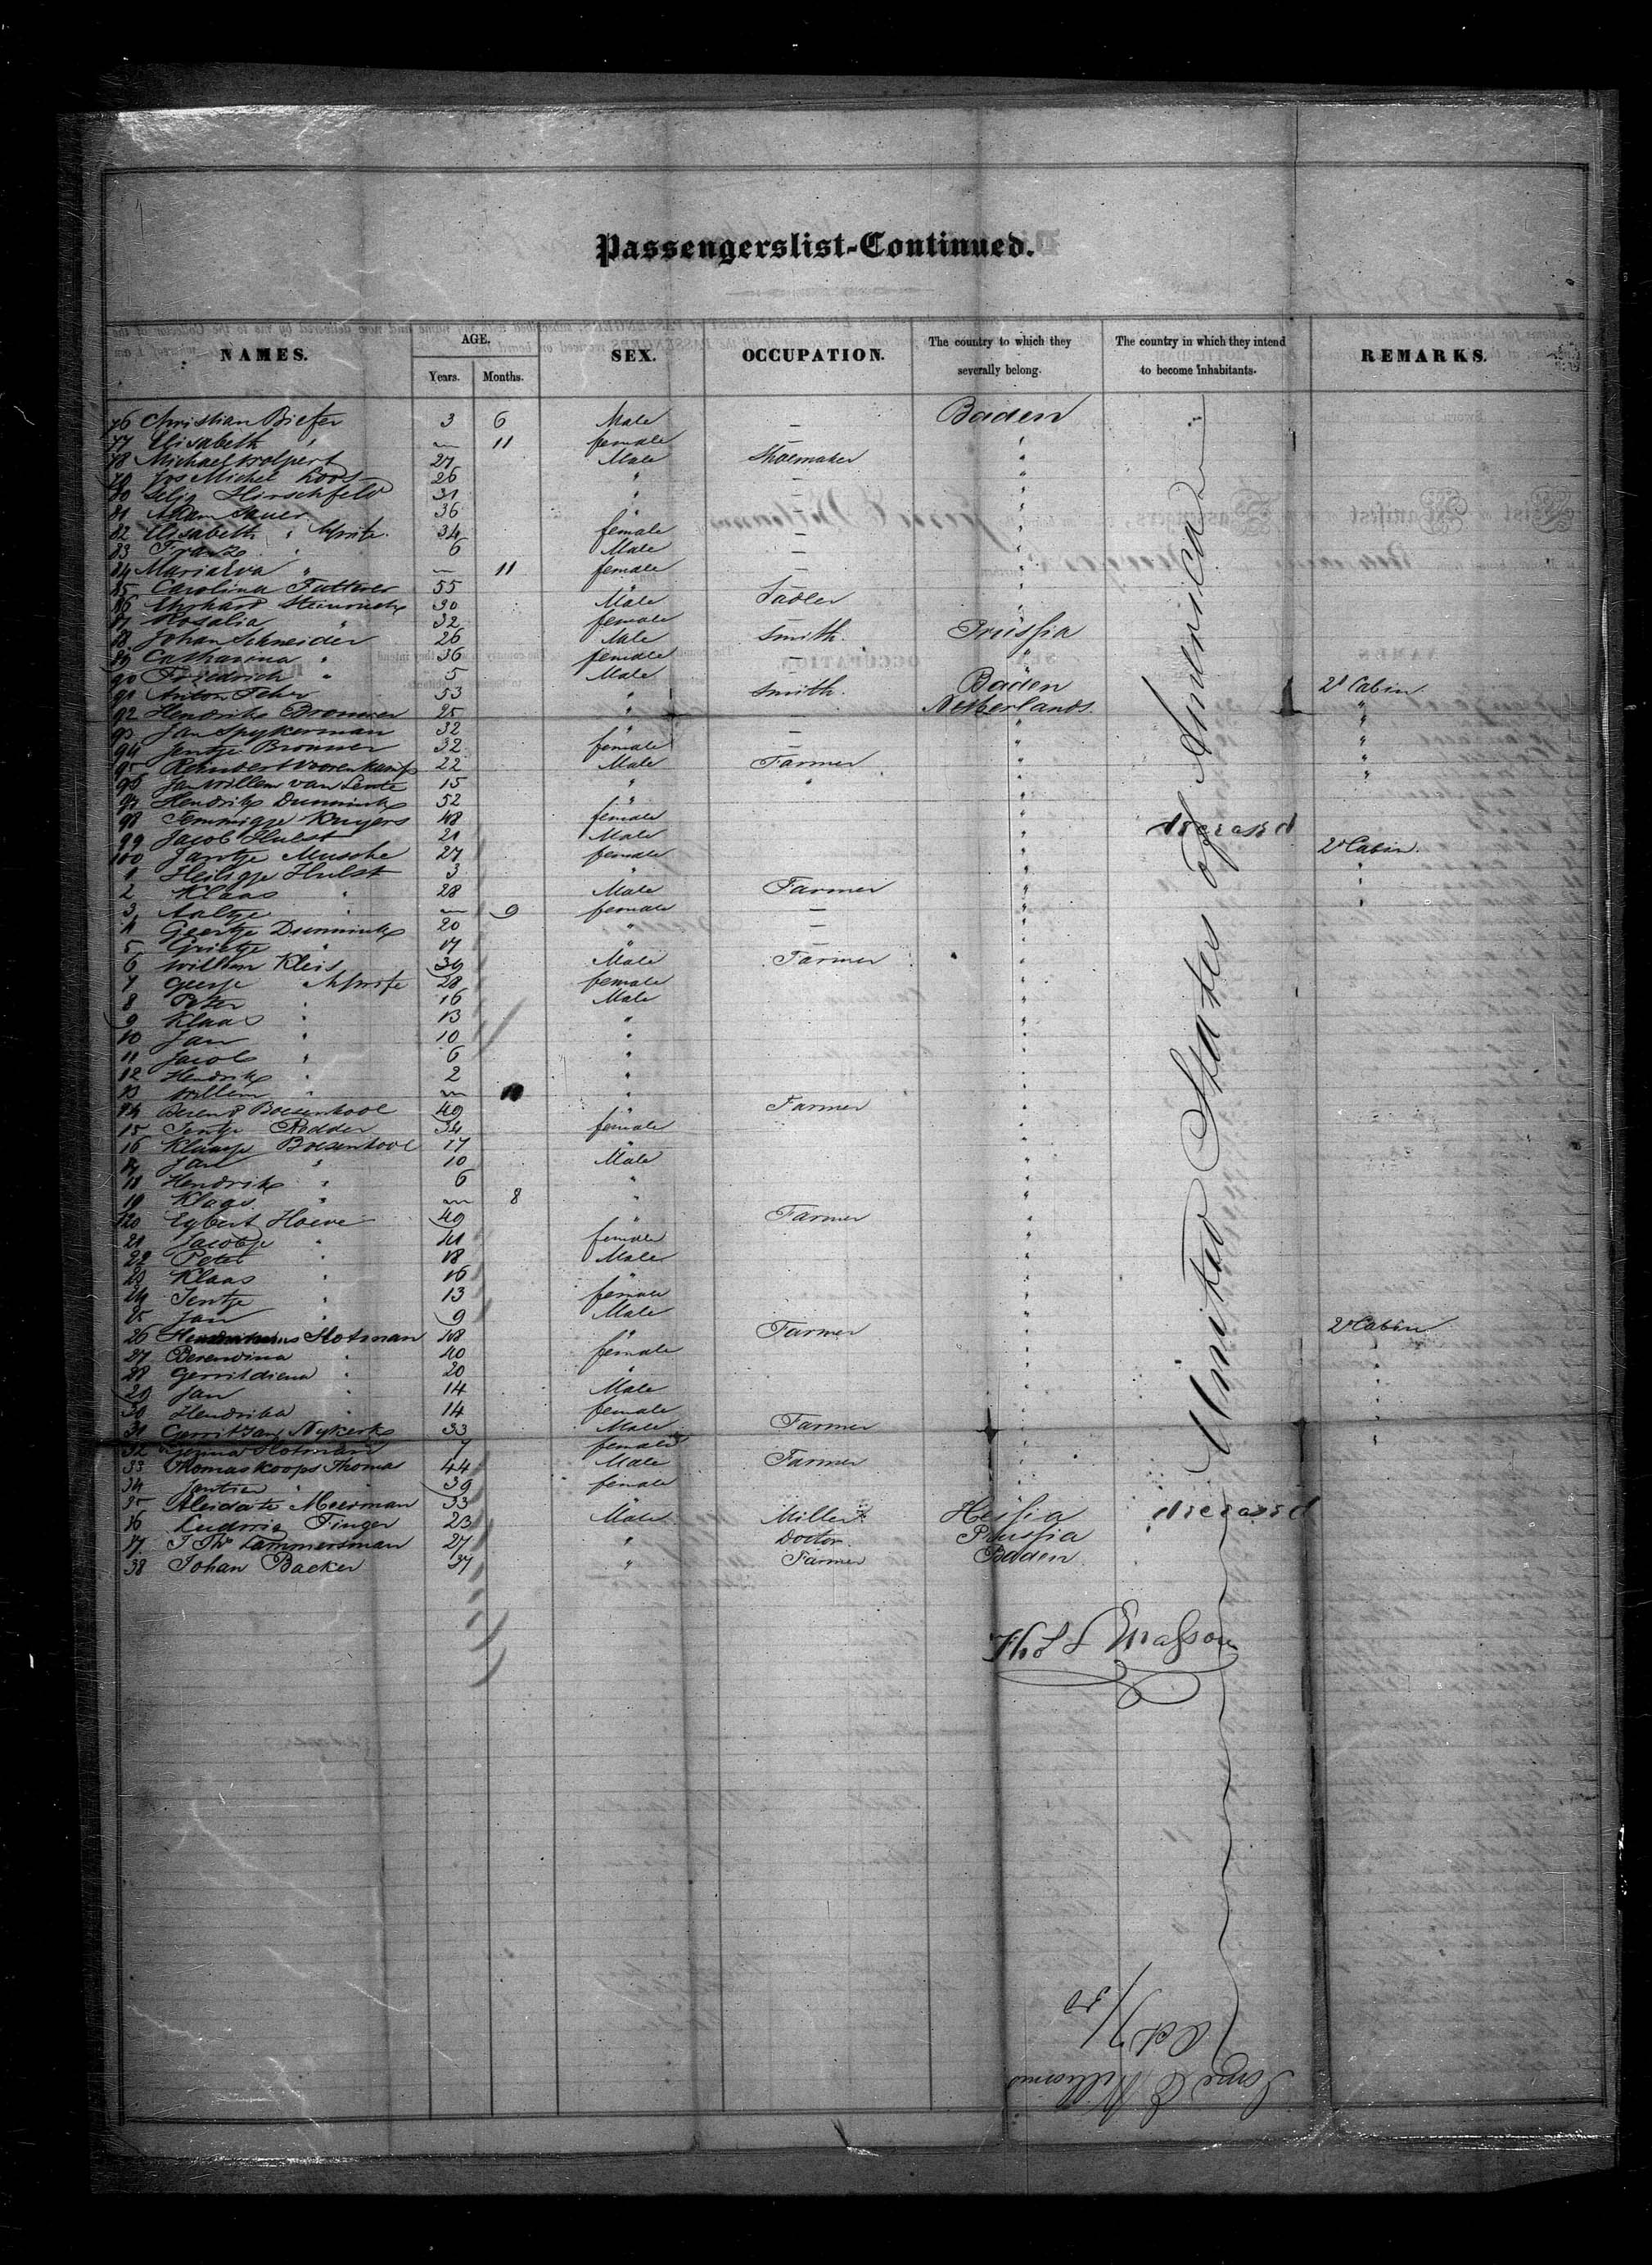 Passengerslist-Continued.
NAMES. AGE. SEX. OCCUPATION. The country to which they severally belong. The country in which they intend to become inhabitants. REMARKS.
Years. Months.
76 Christian Biefer 3 6 Male — Baden
77 Elisabeth " — 11 female — "
78 Michael Wolpert 27 Male Shoemaker "
79 Jos Michel Roos 26 " — "
80 Selig Hirschfeld 31 " — "
81 Adam Sauer 36 " — "
82 Elisabeth " 34 female — "
83 Frantz " 6 Male — "
84 Maria Eva " — 11 female — "
85 Carolina Futterer 55 " — "
86 Ehrhard 30 Male Sadler "
87 Rosalia " 32 female — "
88 Johan Schneider 26 Male Smith. Prussia
89 Catharina " 36 female — "
90 Friedrich " 5 Male — "
91 Anton Fehr 53 " Smith. Baden 2d Cabin
92 Hendrik Brouwer 25 " — Netherlands. "
93 Jan Spykerman 32 " — " "
94 Jentje Brouwer 32 female — " "
95 Reinder Voorenkamp 22 Male Farmer " "
96 Jan Willem van Lente 15 " " " "
97 Hendrik Dunnink 52 " "
98 Jemmigje Kruyers 48 female "
99 Jacob Hulst 21 Male " deceased
100 Jantje Mussche 27 female " 2d Cabin.
1 Heiligje Hulst 3 " " "
2 Klaas " 28 Male Farmer " "
3 Aaltje " — 9 female — " "
4 Geertje Dunnink 20 " — "
5 Grietje " 17 " — "
6 Willem Kleis 39 Male Farmer "
7 Geesje " 28 female "
8 Peter " 16 Male "
9 Klaas " 13 " "
10 Jan " 10 " "
11 Jacob " 6 " "
12 Hendrik " 2 " "
13 Willem " — 10 " "
14 Berend Boesenkool 49 " Farmer "
15 Jentje Redder 34 female "
16 Klaasje Boesenkool 17 " "
17 Jan " 10 Male "
18 Hendrik " 6 " "
19 Klaas " — 8 " "
120 Egbert Hoeve 49 " Farmer "
21 Jacobje " 41 female "
22 Peter " 18 Male "
23 Klaas " 16 " "
24 Jentje " 13 female "
25 Jan " 9 Male "
26 Slotman 48 " Farmer " 2d Cabin
27 Berendina " 40 female " "
28 Gerritdiena " 20 " " "
29 Jan " 14 Male " "
30 Hendrika " 14 female " "
31 Gerrit Jan Nykerk 33 Male Farmer " "
32 Slotman 7 female " "
33 Thomas Koops Thoma 44 Male Farmer "
34 Jantien " 39 female
35 Aleida te Meerman 33 "
36 Ludwig Finger 23 Male Miller Hessia deceased
37 Lammersman 27 " Doctor. Prussia
38 Johan Backer 37 " Farmer Baden
United States of America